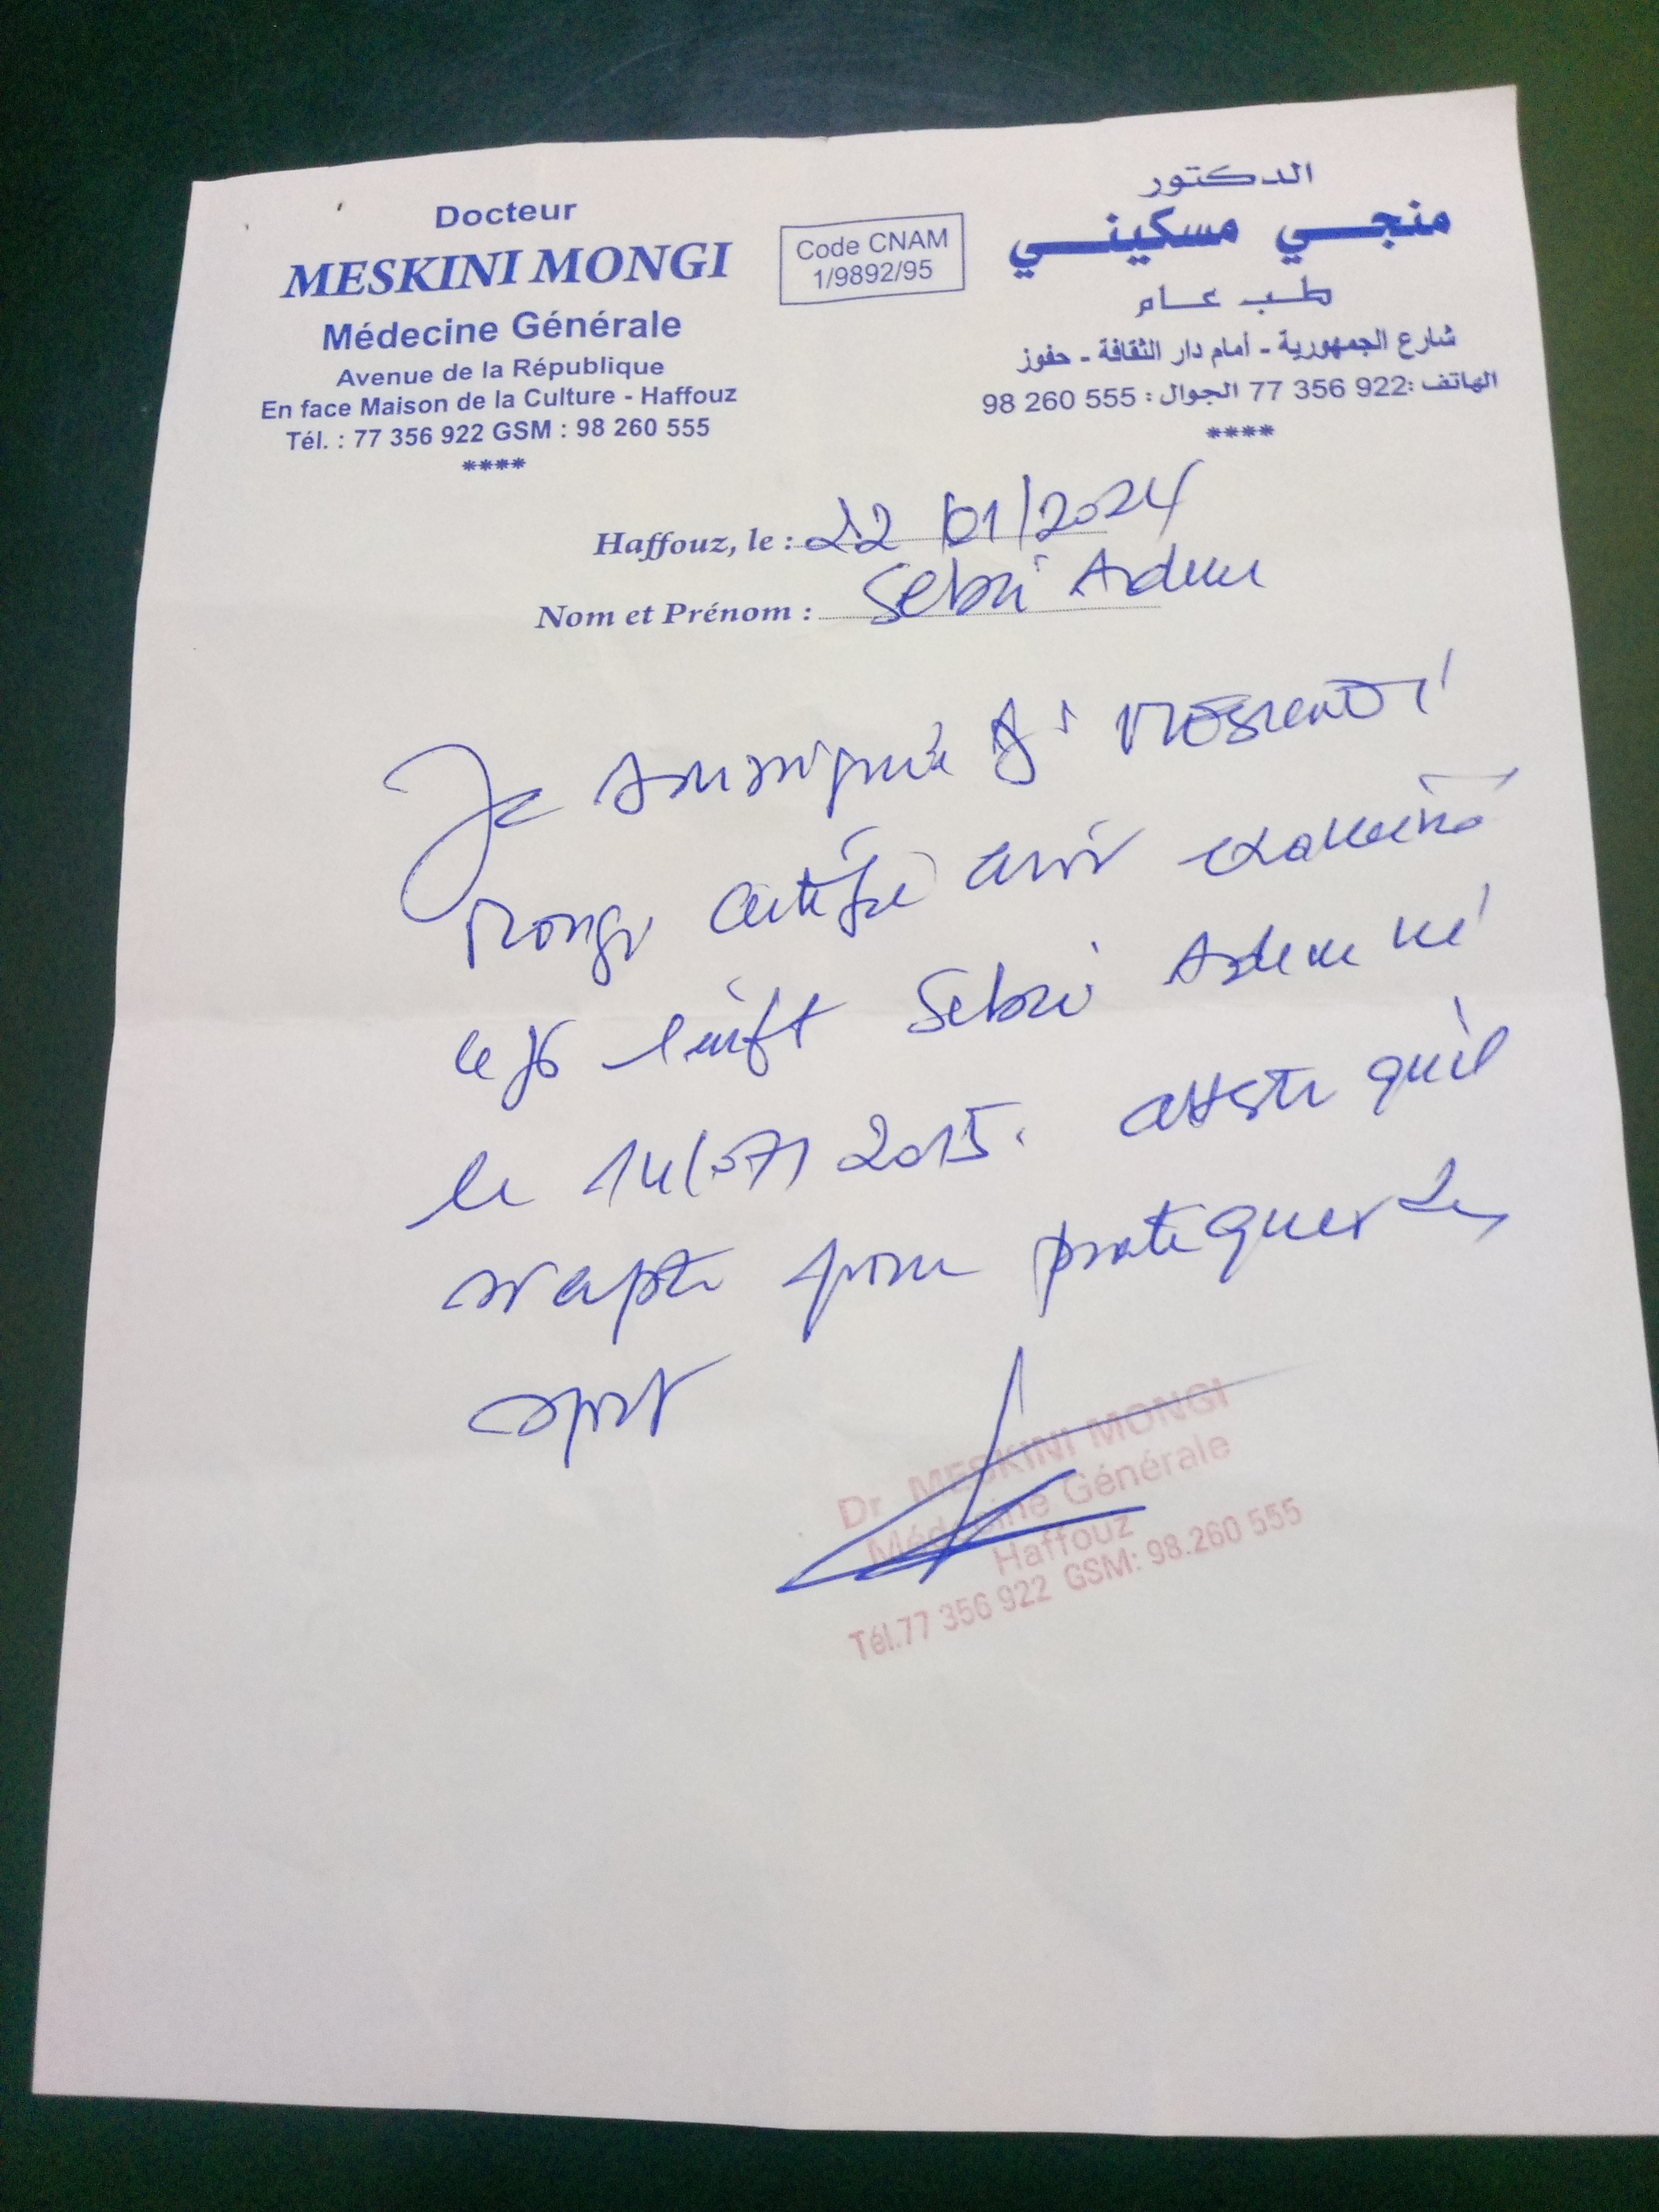 Docteur
MESKINI MONGI
Médecine Générale
Avenue de la République
En face Maison de la Culture - Haffouz
Tél. : 77 356 922 GSM : 98 260 555
****
Code CNAM
1/9892/95
الدكتور
منجي مسكيني
طب عام
شارع الجمهورية - أمام دار الثقافة - حفوز
الهاتف :922 356 77 الجوال : 555 260 98
****
Haffouz, le : 22/01/2024
Nom et Prénom : Sebri Adem
Je soussigné Dr Meskini
Mongi certifie avoir examiné
ce jour l'enfant Sebri Adem né
le 14/07/2015. atteste qu'il
est apte pour pratiquer le
sport
Dr MESKINI MONGI
Médecine Générale
Haffouz
Tél.77 356 922 GSM: 98.260 555